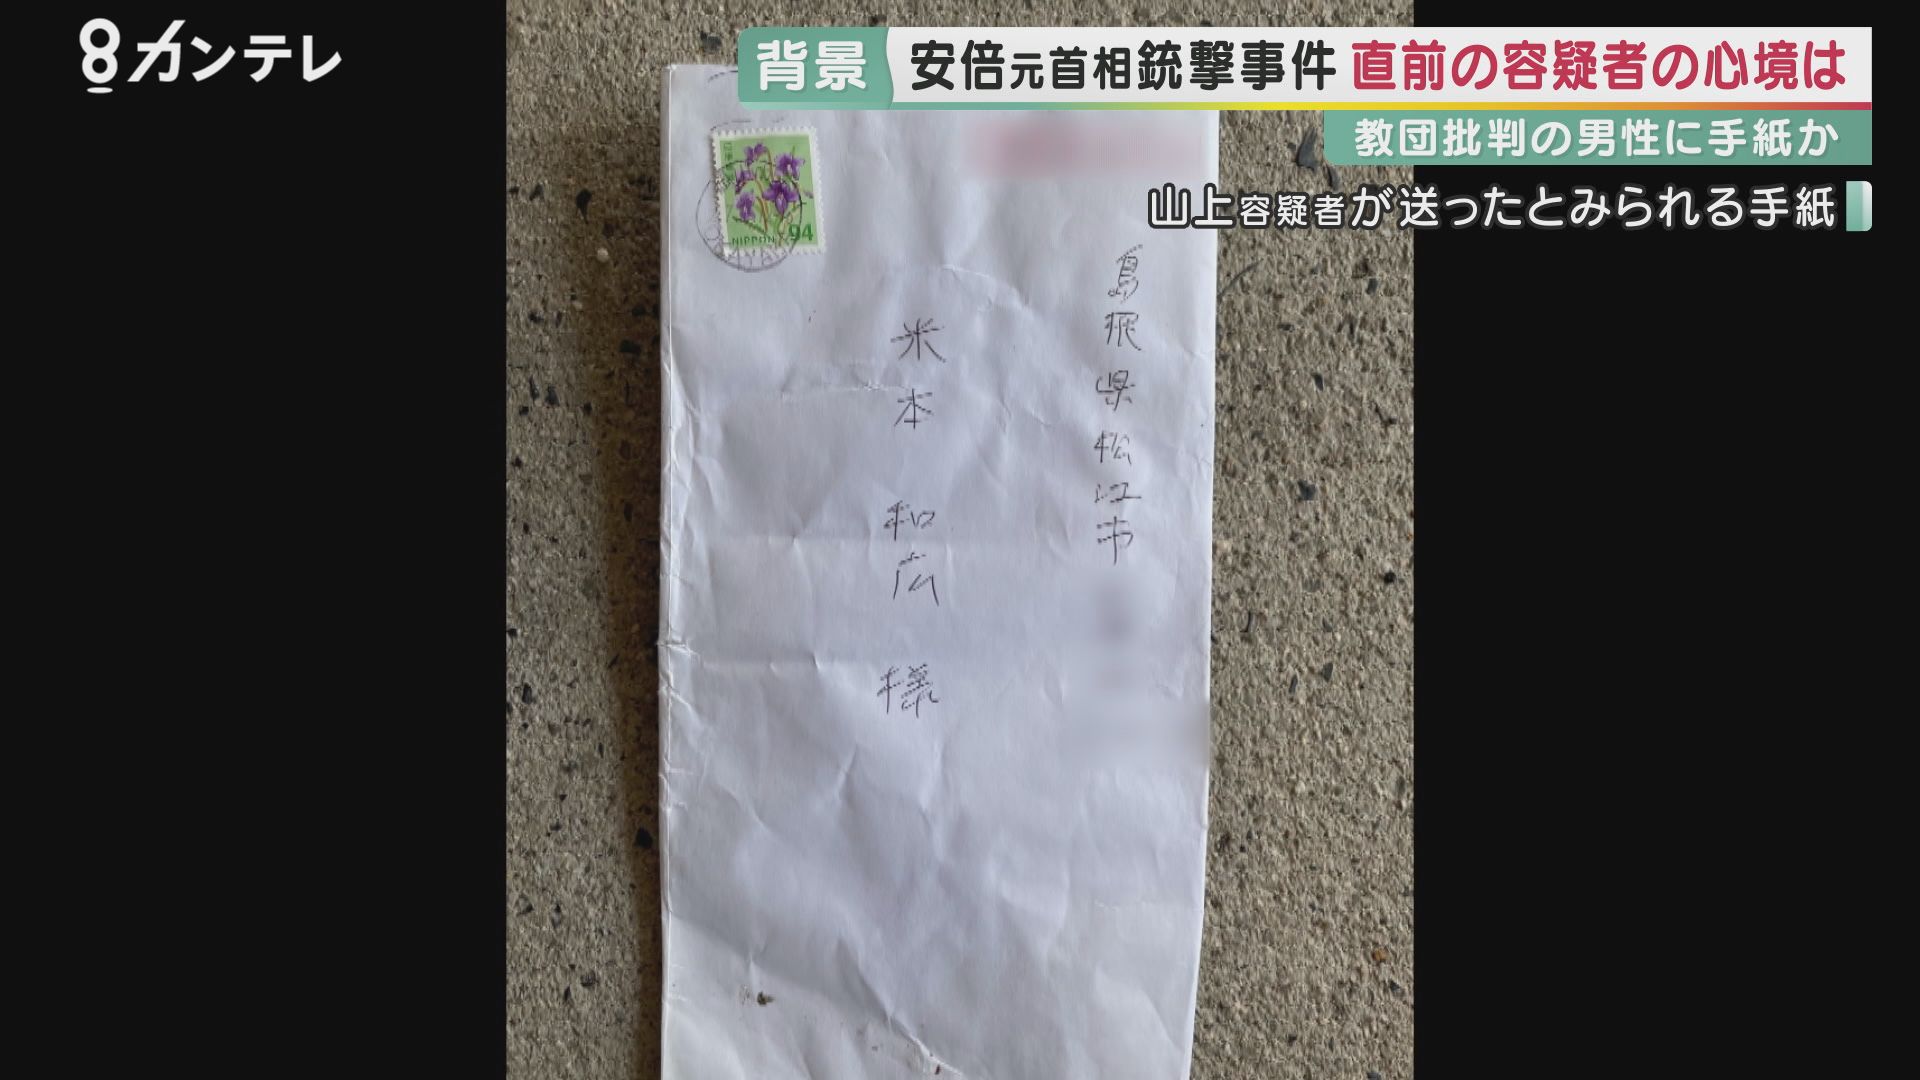 8カンテレ
背景
安倍元首相銃撃事件 直前の容疑者の心境は
教団批判の男性に手紙か
山上容疑者が送ったとみられる手紙
NIPPON 94
島根県松江市
米本 和広 様